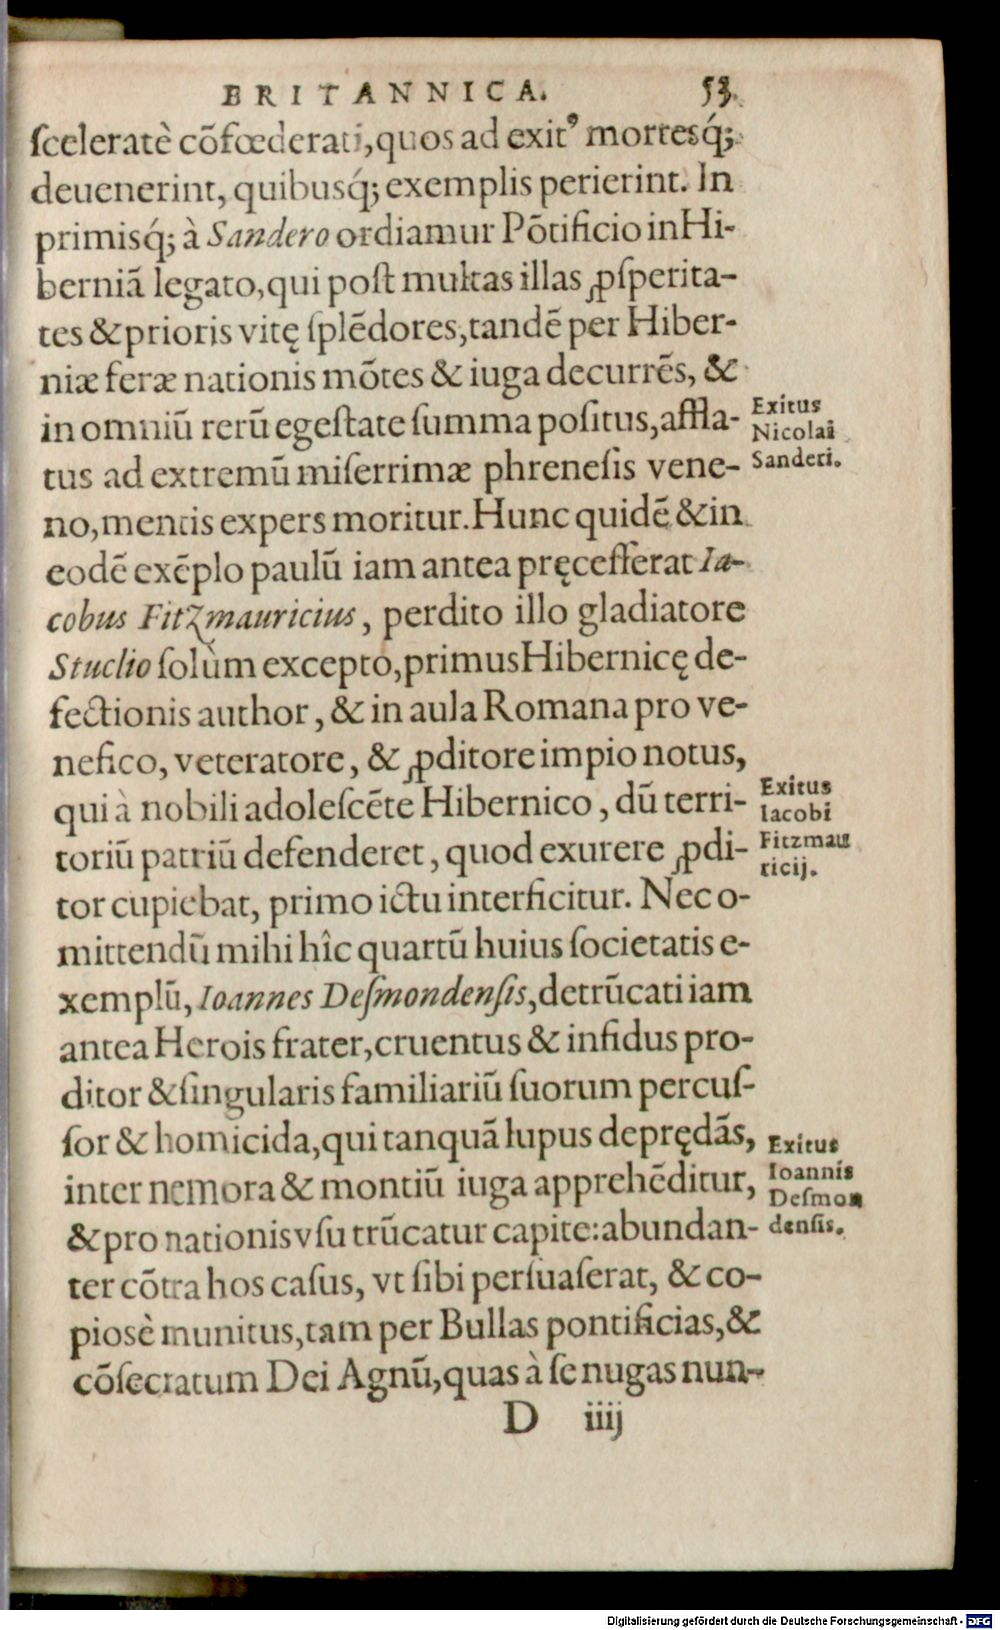 BRITANNICA. 53.
ſceleratè cõfœderati,quos ad exitꝰ mortesq́;
deuenerint, quibusq́; exemplis perierint. In
primisq́; à Sandero ordiamur Põtificio in Hi-
berniã legato,qui poſt multas illas ꝓſperita-
tes & prioris vitę ſplẽdores,tandẽ per Hiber-
niæ feræ nationis mõtes & iuga decurrẽs, &
in omniũ rerũ egeſtate ſumma poſitus,affla-
tus ad extremũ miſerrimæ phreneſis vene-
no,mentis expers moritur.Hunc quidẽ & in
eodẽ exẽplo paulũ iam antea pręceſſerat Ia-
cobus Fitzmauricius, perdito illo gladiatore
Stuclio ſolùm excepto,primus Hibernicę de-
fectionis author, & in aula Romana pro ve-
nefico, veteratore, & ꝓditore impio notus,
qui à nobili adoleſcẽte Hibernico, dũ terri-
toriũ patriũ defenderet, quod exurere ꝓdi-
tor cupiebat, primo ictu interficitur. Nec o-
mittendũ mihi hîc quartũ huius ſocietatis e-
xemplũ, Ioannes Deſmondenſis,detrũcati iam
antea Herois frater,cruentus & infidus pro-
ditor & ſingularis familiariũ ſuorum percuſ-
ſor & homicida,qui tanquã lupus deprędãs,
inter nemora & montiũ iuga apprehẽditur,
& pro nationis vſu trũcatur capite:abundan-
ter cõtra hos caſus, vt ſibi perſuaſerat, & co-
pioſè munitus,tam per Bullas pontificias,&
cõſecratum Dei Agnũ,quas à ſe nugas nun-
D iiij
Exitus
Nicolai
Sanderi.
Exitus
Iacobi
Fitzmau
ricij.
Exitus
Ioannis
Deſmon
denſis.
Digitalisierung gefördert durch die Deutsche Forschungsgemeinschaft - DFG